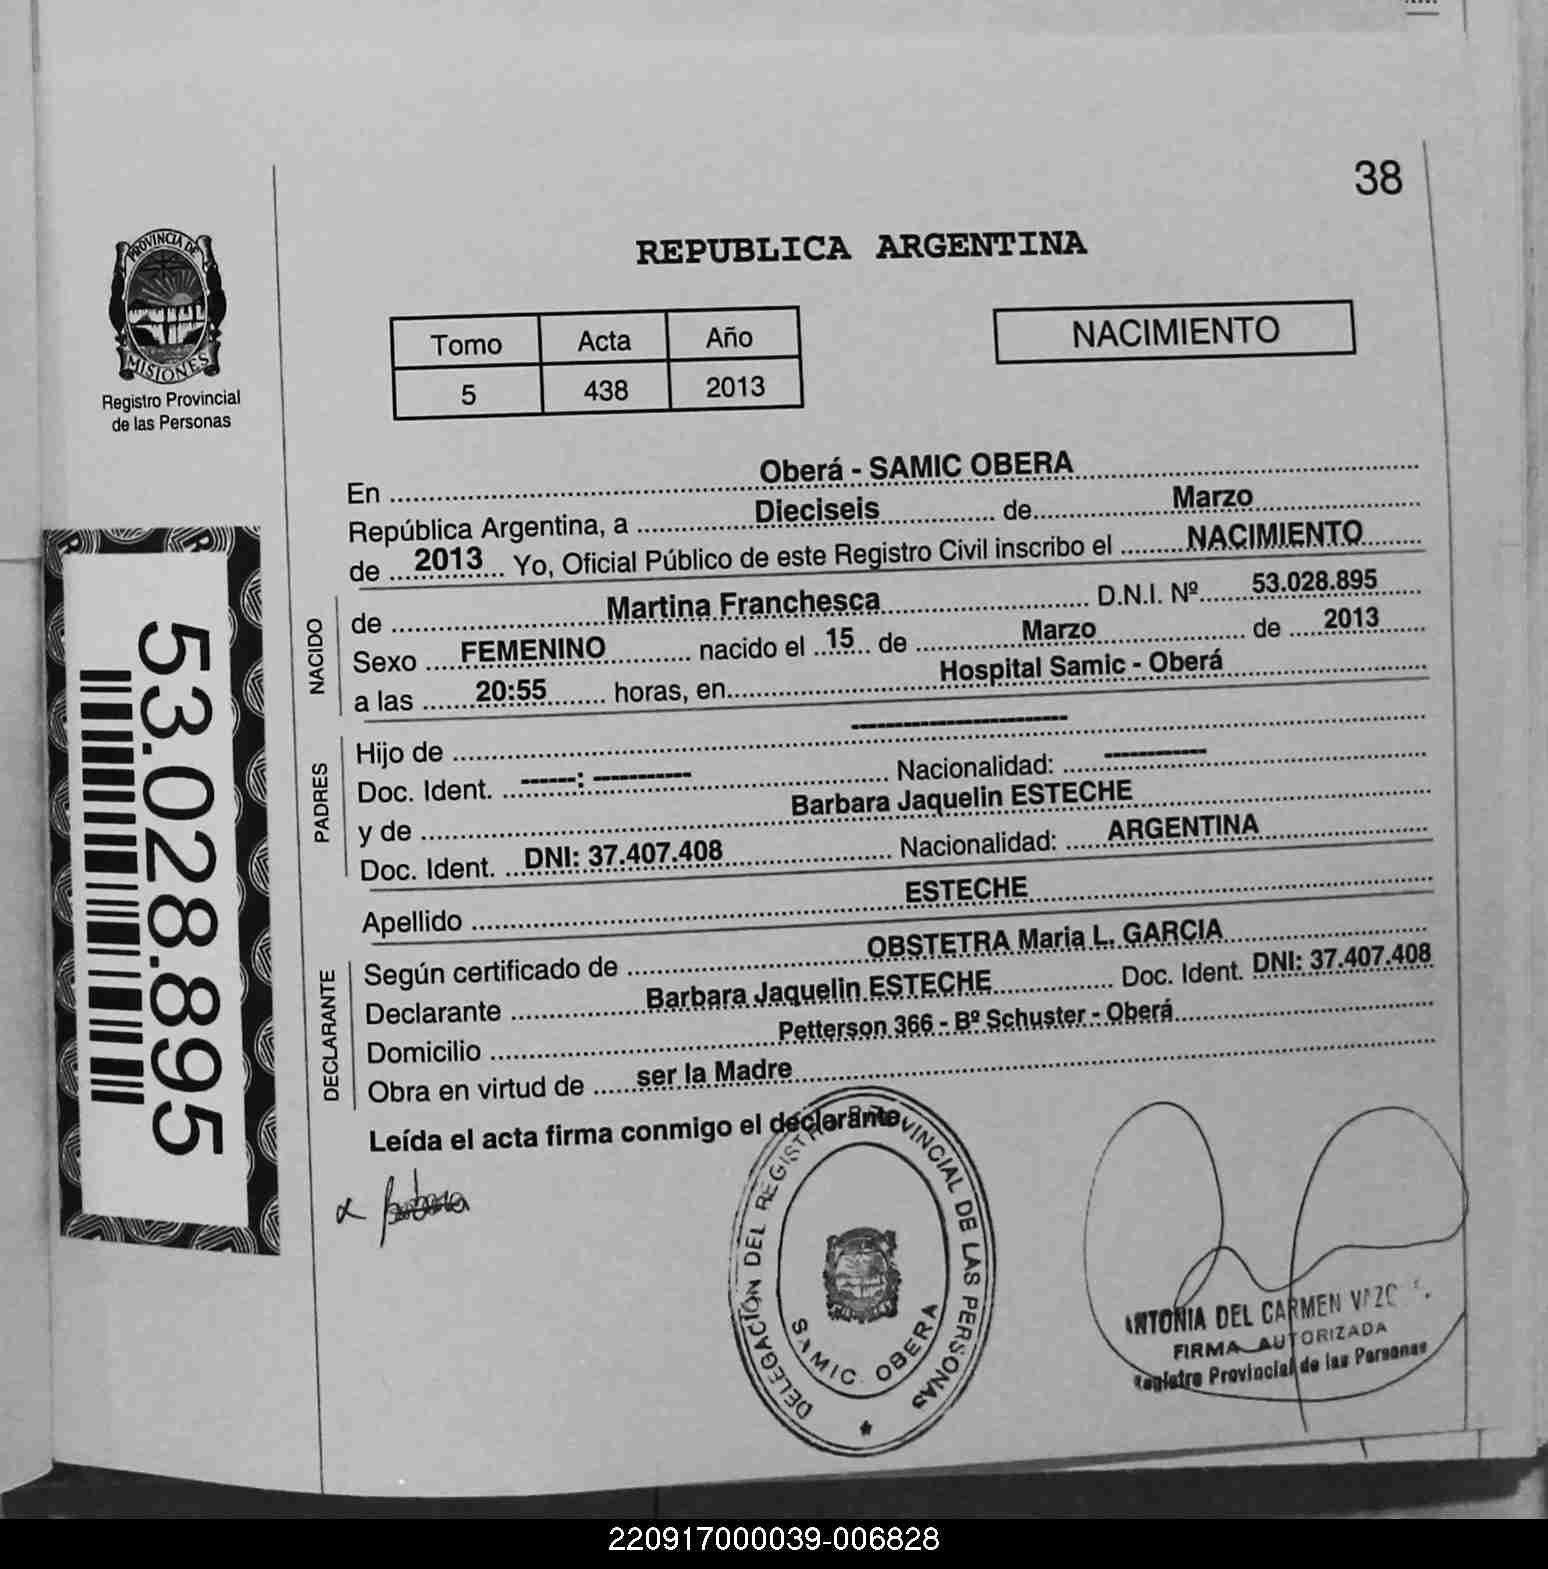 38
PROVINCIA DE
MISIONES
Registro Provincial
de las Personas
REPUBLICA ARGENTINA
Tomo Acta Año
5 438 2013
NACIMIENTO
En Oberá - SAMIC OBERA
República Argentina, a Dieciseis de Marzo
de 2013 Yo, Oficial Público de este Registro Civil inscribo el NACIMIENTO
NACIDO
de Martina Franchesca D.N.I. Nº 53.028.895
Sexo FEMENINO nacido el 15 de Marzo de 2013
a las 20:55 horas, en Hospital Samic - Oberá
PADRES
Hijo de --------------------
Doc. Ident. ------: ----------- Nacionalidad: -----------
y de Barbara Jaquelin ESTECHE
Doc. Ident. DNI: 37.407.408 Nacionalidad: ARGENTINA
Apellido ESTECHE
DECLARANTE
Según certificado de OBSTETRA Maria L. GARCIA
Declarante Barbara Jaquelin ESTECHE Doc. Ident. DNI: 37.407.408
Domicilio Petterson 366 - Bº Schuster - Oberá
Obra en virtud de ser la Madre
Leída el acta firma conmigo el declarante
53.028.895
DELEGACIÓN DEL REGISTRO PROVINCIAL DE LAS PERSONAS
SAMIC OBERA
ANTONIA DEL CARMEN
FIRMA AUTORIZADA
Registro Provincial de las Personas
220917000039-006828